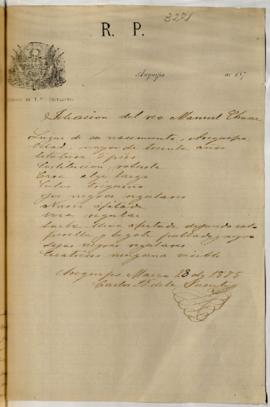 3271
R. P.
Arequipa de 187
Filiacion del reo Manuel
Lugar de su nacimiento, Arequipa
Edad, mayor de treinta años
Estatura 5 pies
Constitucion, robusta
Cara algo larga
Color Trigueño
Ojos negros regulares
Nariz afilada
Boca regular
Barba
y bigote poblado y negro
Cejas negras regulares
Cicatrices ninguna visible
Arequipa Marzo 28 de 1875
Carlos